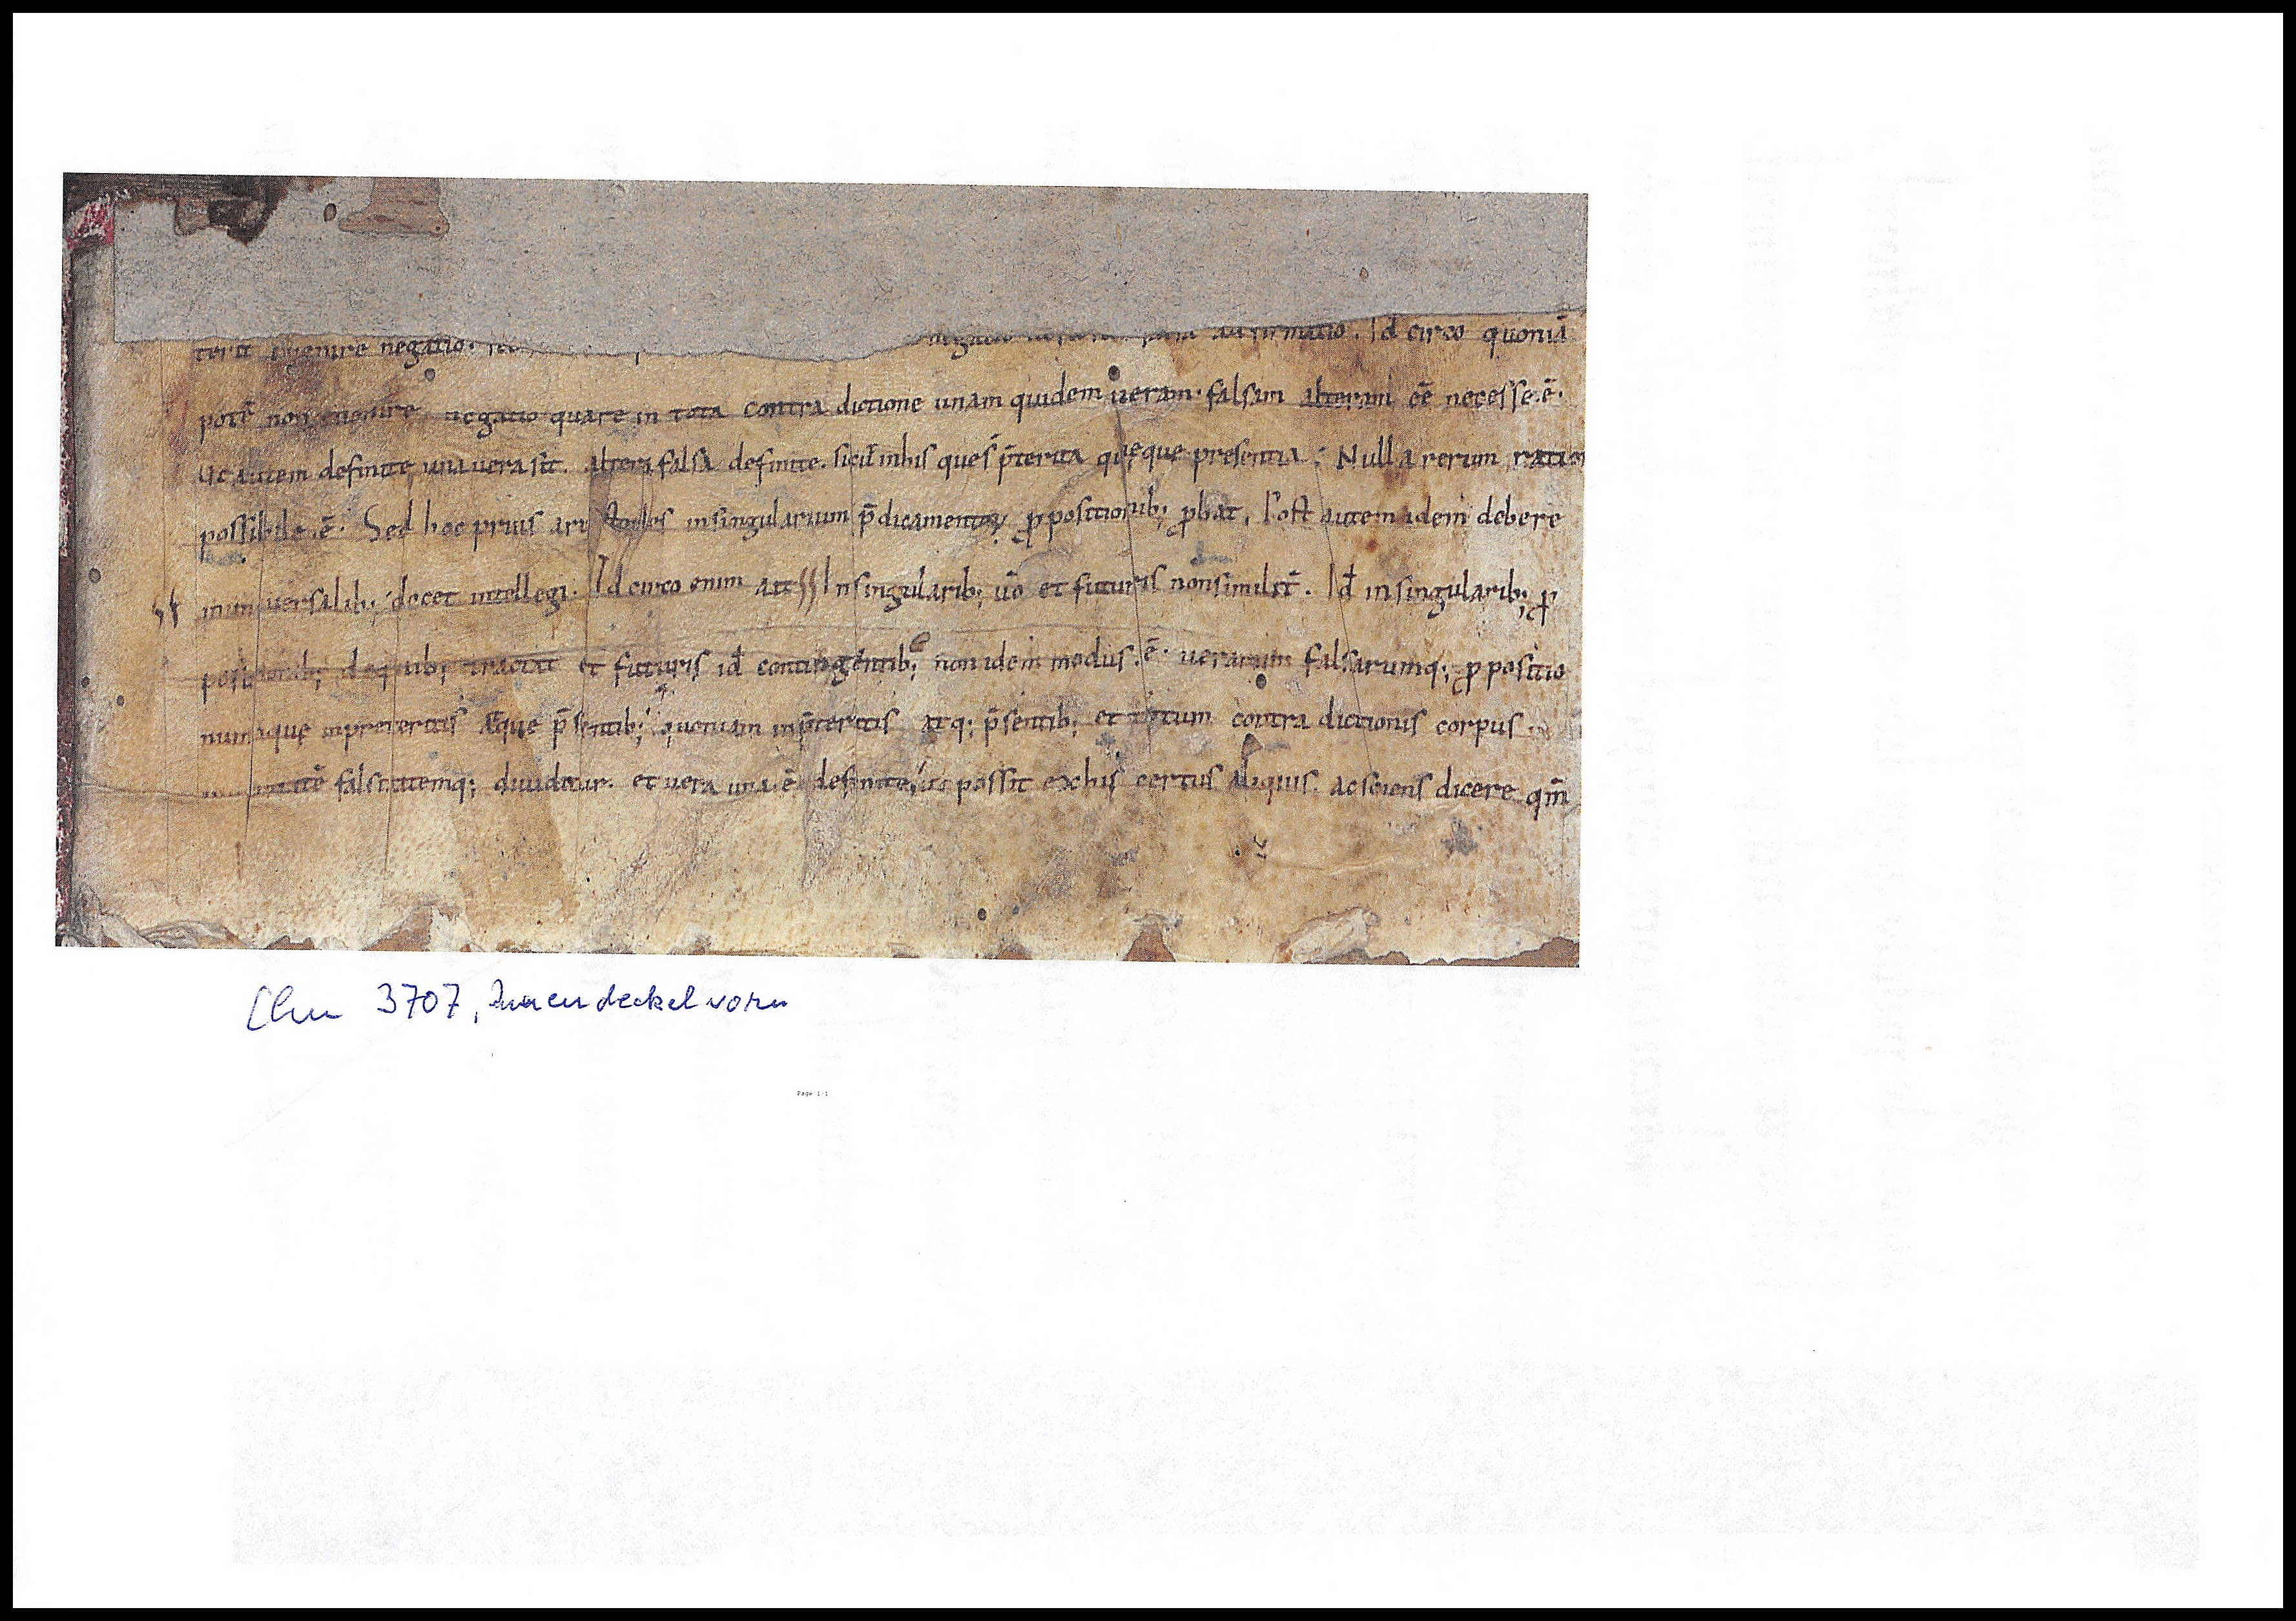 negatio. adfirmatio. Id circo quoniā
potē non euenire negatio quare in tota contra dictione unam quidem ueram. falsam alteram eē necesse.ē.
Ut autem definite una uera sit. altera falsa definite. sicut inhis quę s̄ p̄terita quęque presentia; Nulla rerum ration
possibile.ē. Sed hoc prius ari stotles insingularium p̄dicamento ꝓpositionib; ꝓbat, Post autem idem debere
inuniuersalib; docet intellegi. Id circo enim ait In singularib; uō et futuris non similit̄. Id̄ in singularib; ꝓ
positionib; dequib; tractat et futuris id̄ contingentib; non idem modus.ē. uerarum falsarumq; ꝓpositio
numque inpreteritis Æque p̄sentib; quoniam inp̄teritis atq; p̄sentib; et totum contra dictionis corpus.
falsitatemq; diuiditur. et uera una.ē. definite, ut possit exhis certus aliquis. ac sciens dicere qm̄
Clm 3707, Innendeckel vorn
Page 1/1